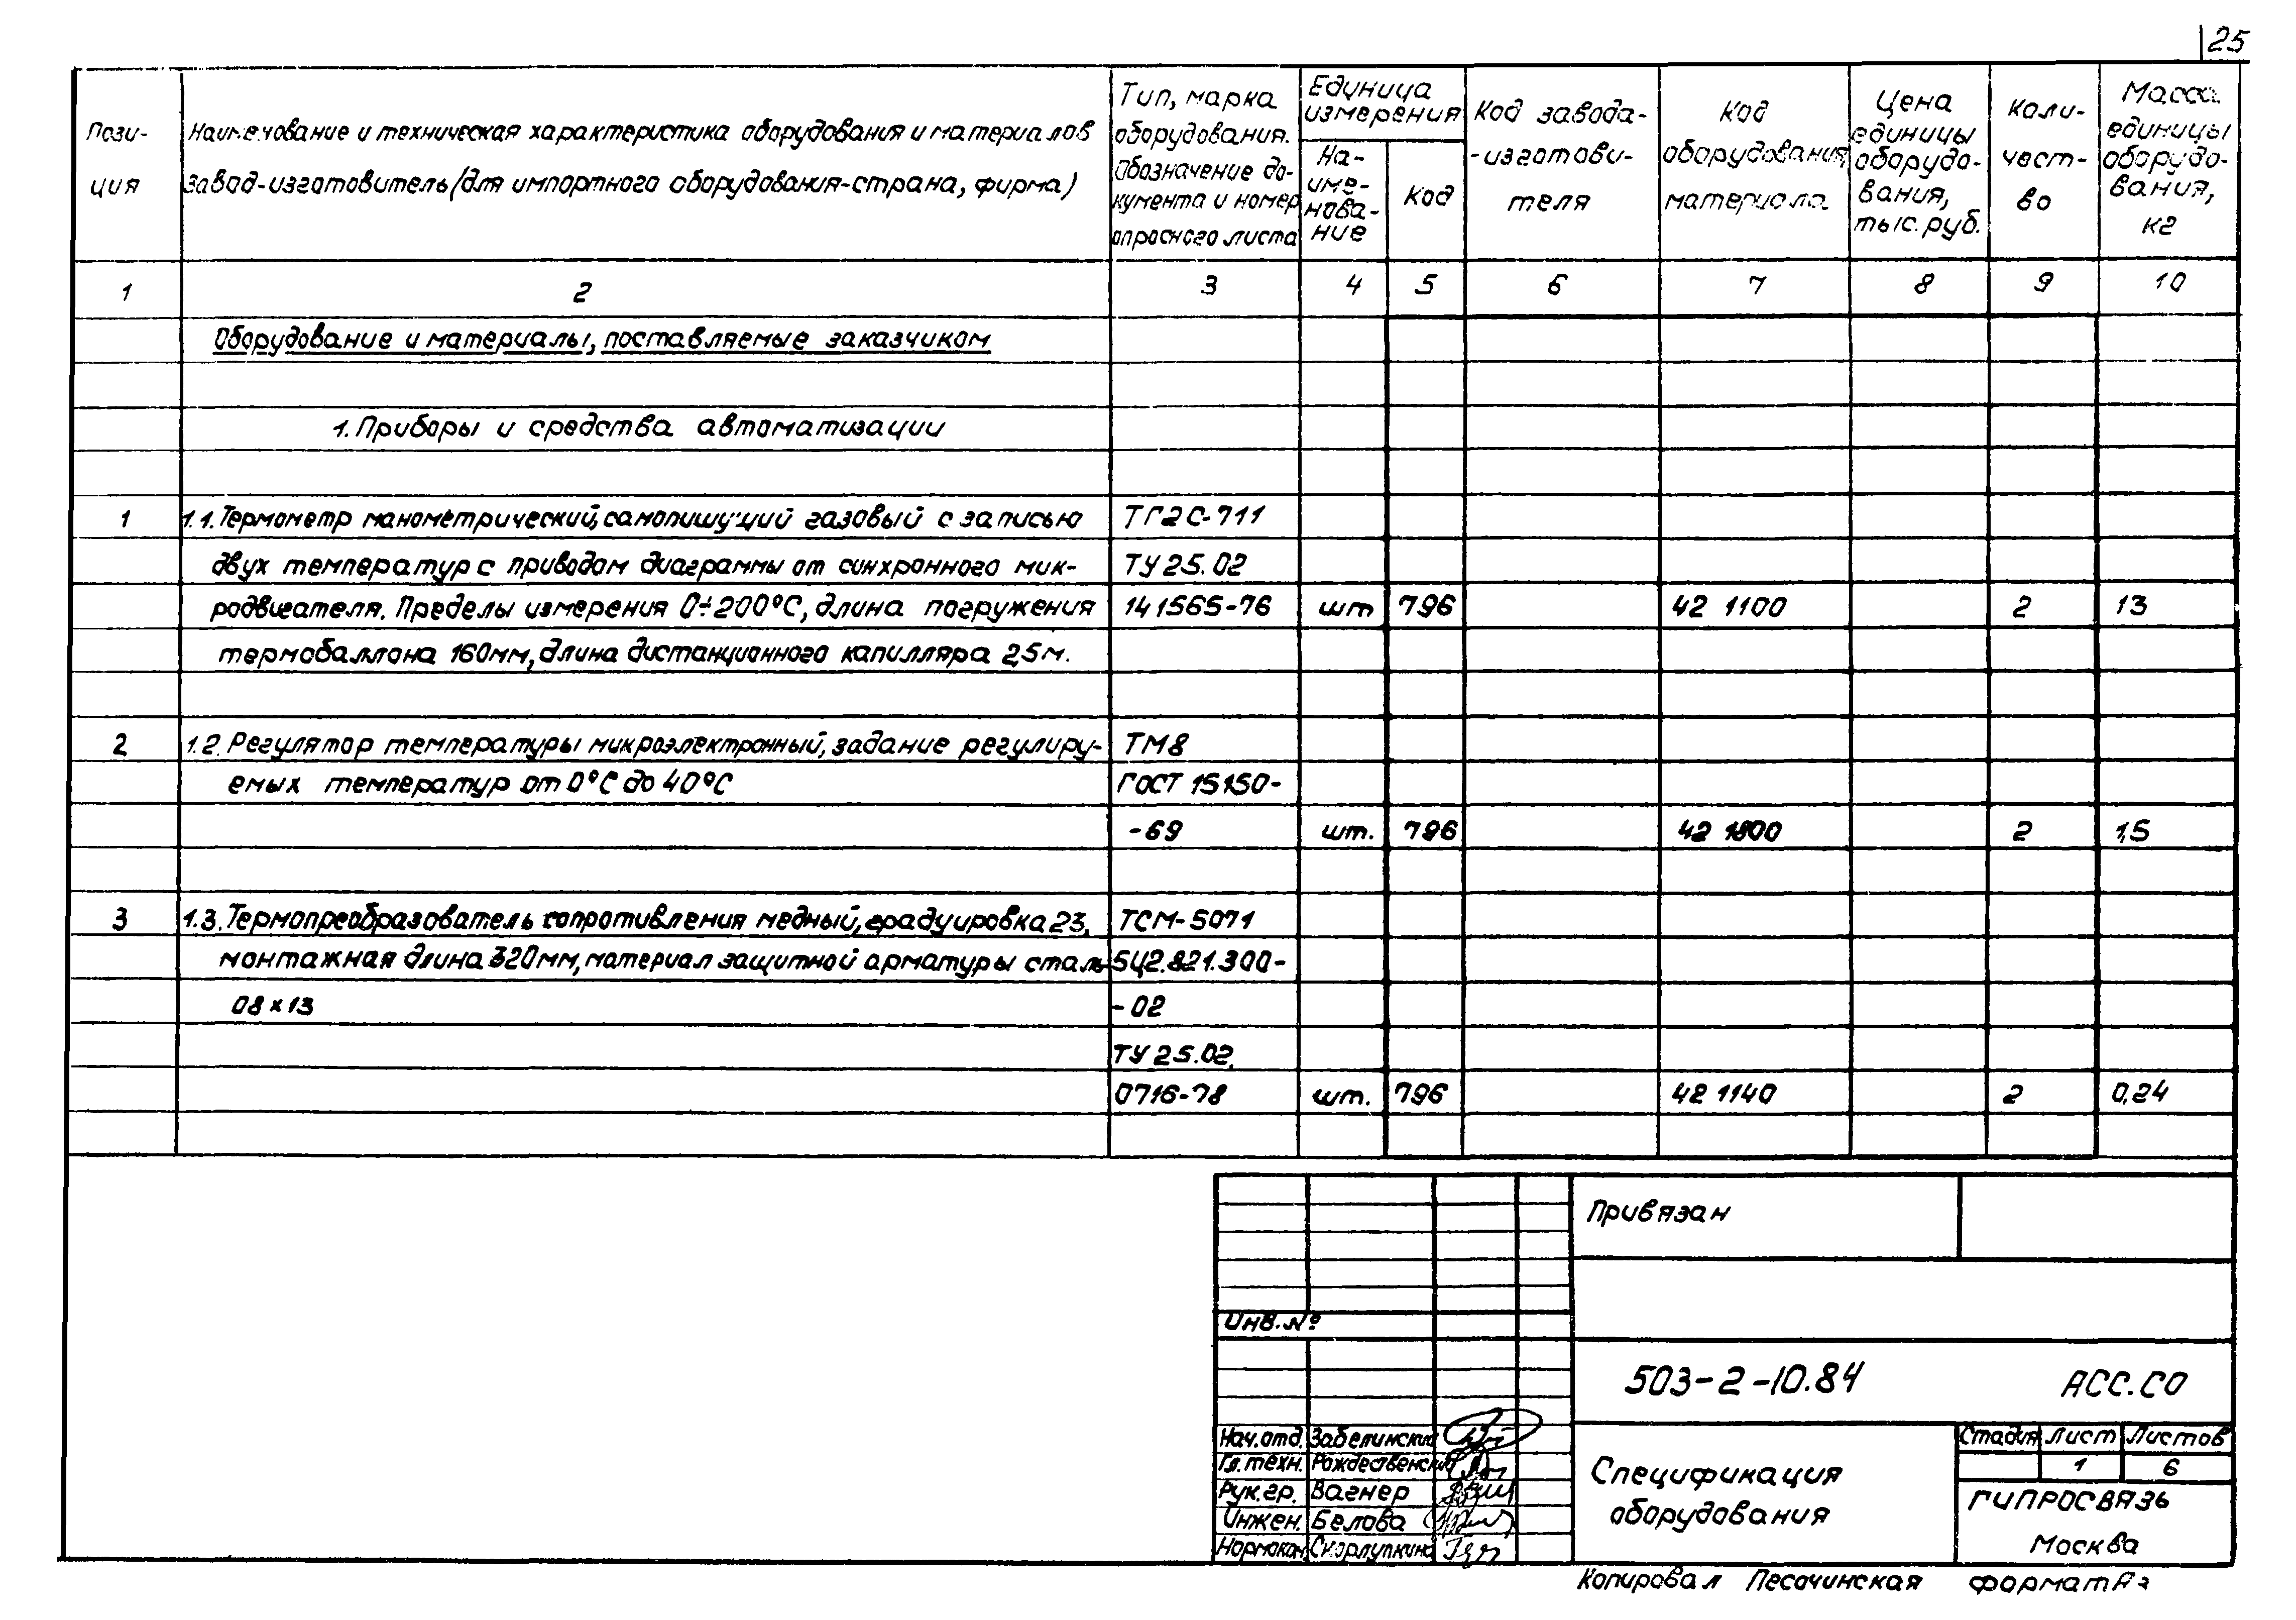 25
Пози-
ция
Наименование и техническая характеристика оборудования и материалов
завод-изготовитель (для импортного оборудования-страна, фирма)
Тип, марка
оборудования.
Обозначение до-
кумента и номер
опросного листа
Единица
измерения
На-
име-
нова-
ние
Код
Код завода-
-изготови-
теля
Код
оборудования,
материала
Цена
единицы
оборудо-
вания,
тыс. руб.
Коли-
чест-
во
Масса
единицы
оборудо-
вания,
кг
1 2 3 4 5 6 7 8 9 10
Оборудование и материалы, поставляемые заказчиком
1. Приборы и средства автоматизации
1 1.1. Термометр манометрический, самопишущий газовый с записью ТГ2С-711
двух температур с приводом диаграммы от синхронного мик- ТУ 25.02
родвигателя. Пределы измерения 0÷200°С, длина погружения 141565-76 шт 796 42 1100 2 13
термобаллона 160мм, длина дистанционного капилляра 2,5 м.
2 1.2. Регулятор температуры микроэлектронный, задание регулиру- ТМ8
емых температур от 0°С до 40°С ГОСТ 15150-
-69 шт. 796 42 1800 2 1,5
3 1.3. Термопреобразователь сопротивления медный, градуировка 23, ТСМ-5071
монтажная длина 320мм, материал защитной арматуры сталь 5Ц2.821.300-
08×13 -02
ТУ 25.02.
0716-78 шт. 796 42 1140 2 0,24
Привязан
Инв. №
503-2-10.84 АСС.СО
Нач. отд. Забелинский
Гл. техн. Рождественский
Рук. гр. Вагнер
Инжен. Белова
Нормокон. Скорлупкина
Спецификация
оборудования
Стадия Лист Листов
1 6
ГИПРОСВЯЗЬ
Москва
Копировал Песочинская формат А3